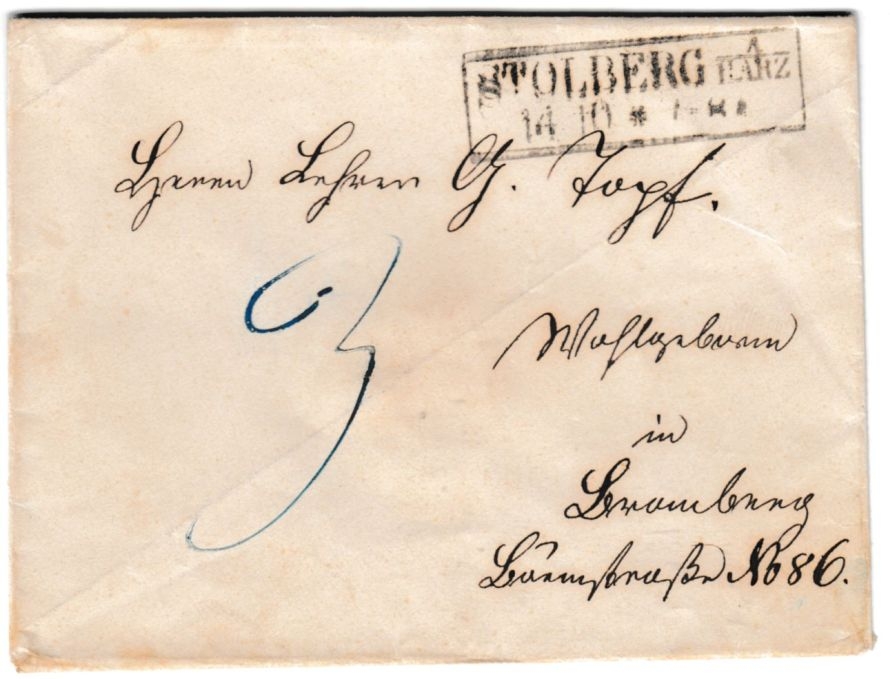 STOLBERG A HARZ
14 10 *
Herrn Lehrer G. Topf.
3
Wohlgeboren
in
Bromberg
Bärenstraße No 86.